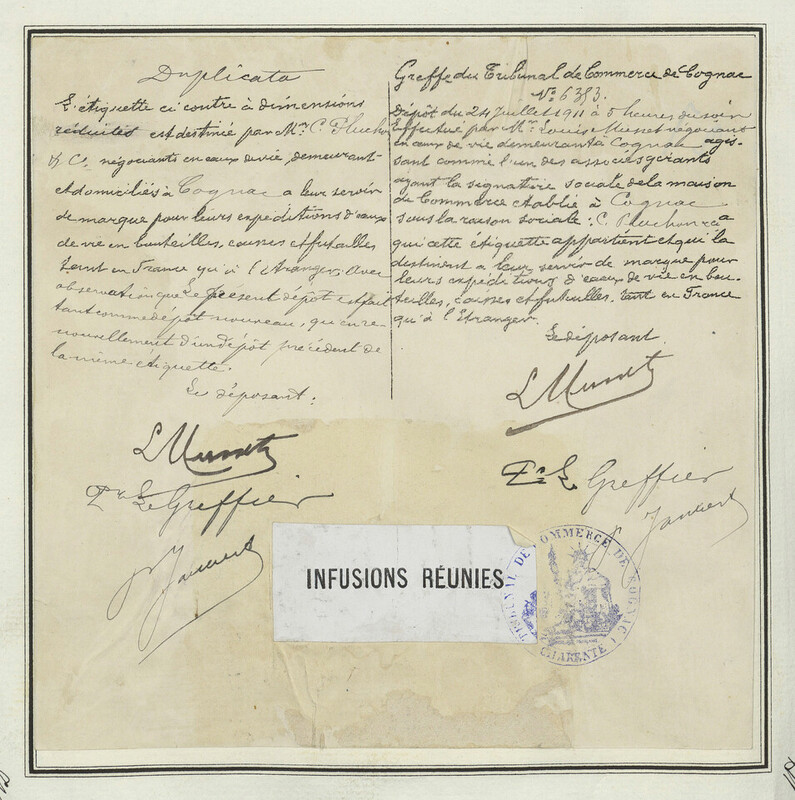 Duplicata
L'étiquette ci contre à dimensions
réduites est destinée par Mrs C. Pluchon
& Co, négociants en eaux de vie, demeurant
et domiciliés à Cognac a leur servir
de marque pour leurs expéditions d'eaux
de vie en bouteilles, caisses et futailles
tant en France qu'à l'Etranger, avec
observation que le présent dépôt est fait
tant comme dépôt nouveau, qu'en re-
nouvellement d'un dépôt précédent de
la même étiquette.
Le déposant:
L Musset
Pr Le Greffier
Greffe du Tribunal de Commerce de Cognac
No 6353.
Dépôt du 24 Juillet 1911 à 5 heures du soir
Effectué par Mr Louis Musset négociant
en eaux de vie demeurant à Cognac agis-
sant comme l'un des associés gérants
ayant la signature sociale de la maison
de Commerce établie à Cognac
sous la raison sociale: C. Pluchon & Co
qui cette étiquette appartient et qui la
destinent a leur servir de marque pour
leurs expéditions d'eaux de vie en bou-
teilles, caisses et futailles, tant en France
qu'à l'Etranger.
Le déposant.
L Musset
Pr Le Greffier
INFUSIONS RÉUNIES
TRIBUNAL DE COMMERCE DE COGNAC
CHARENTE